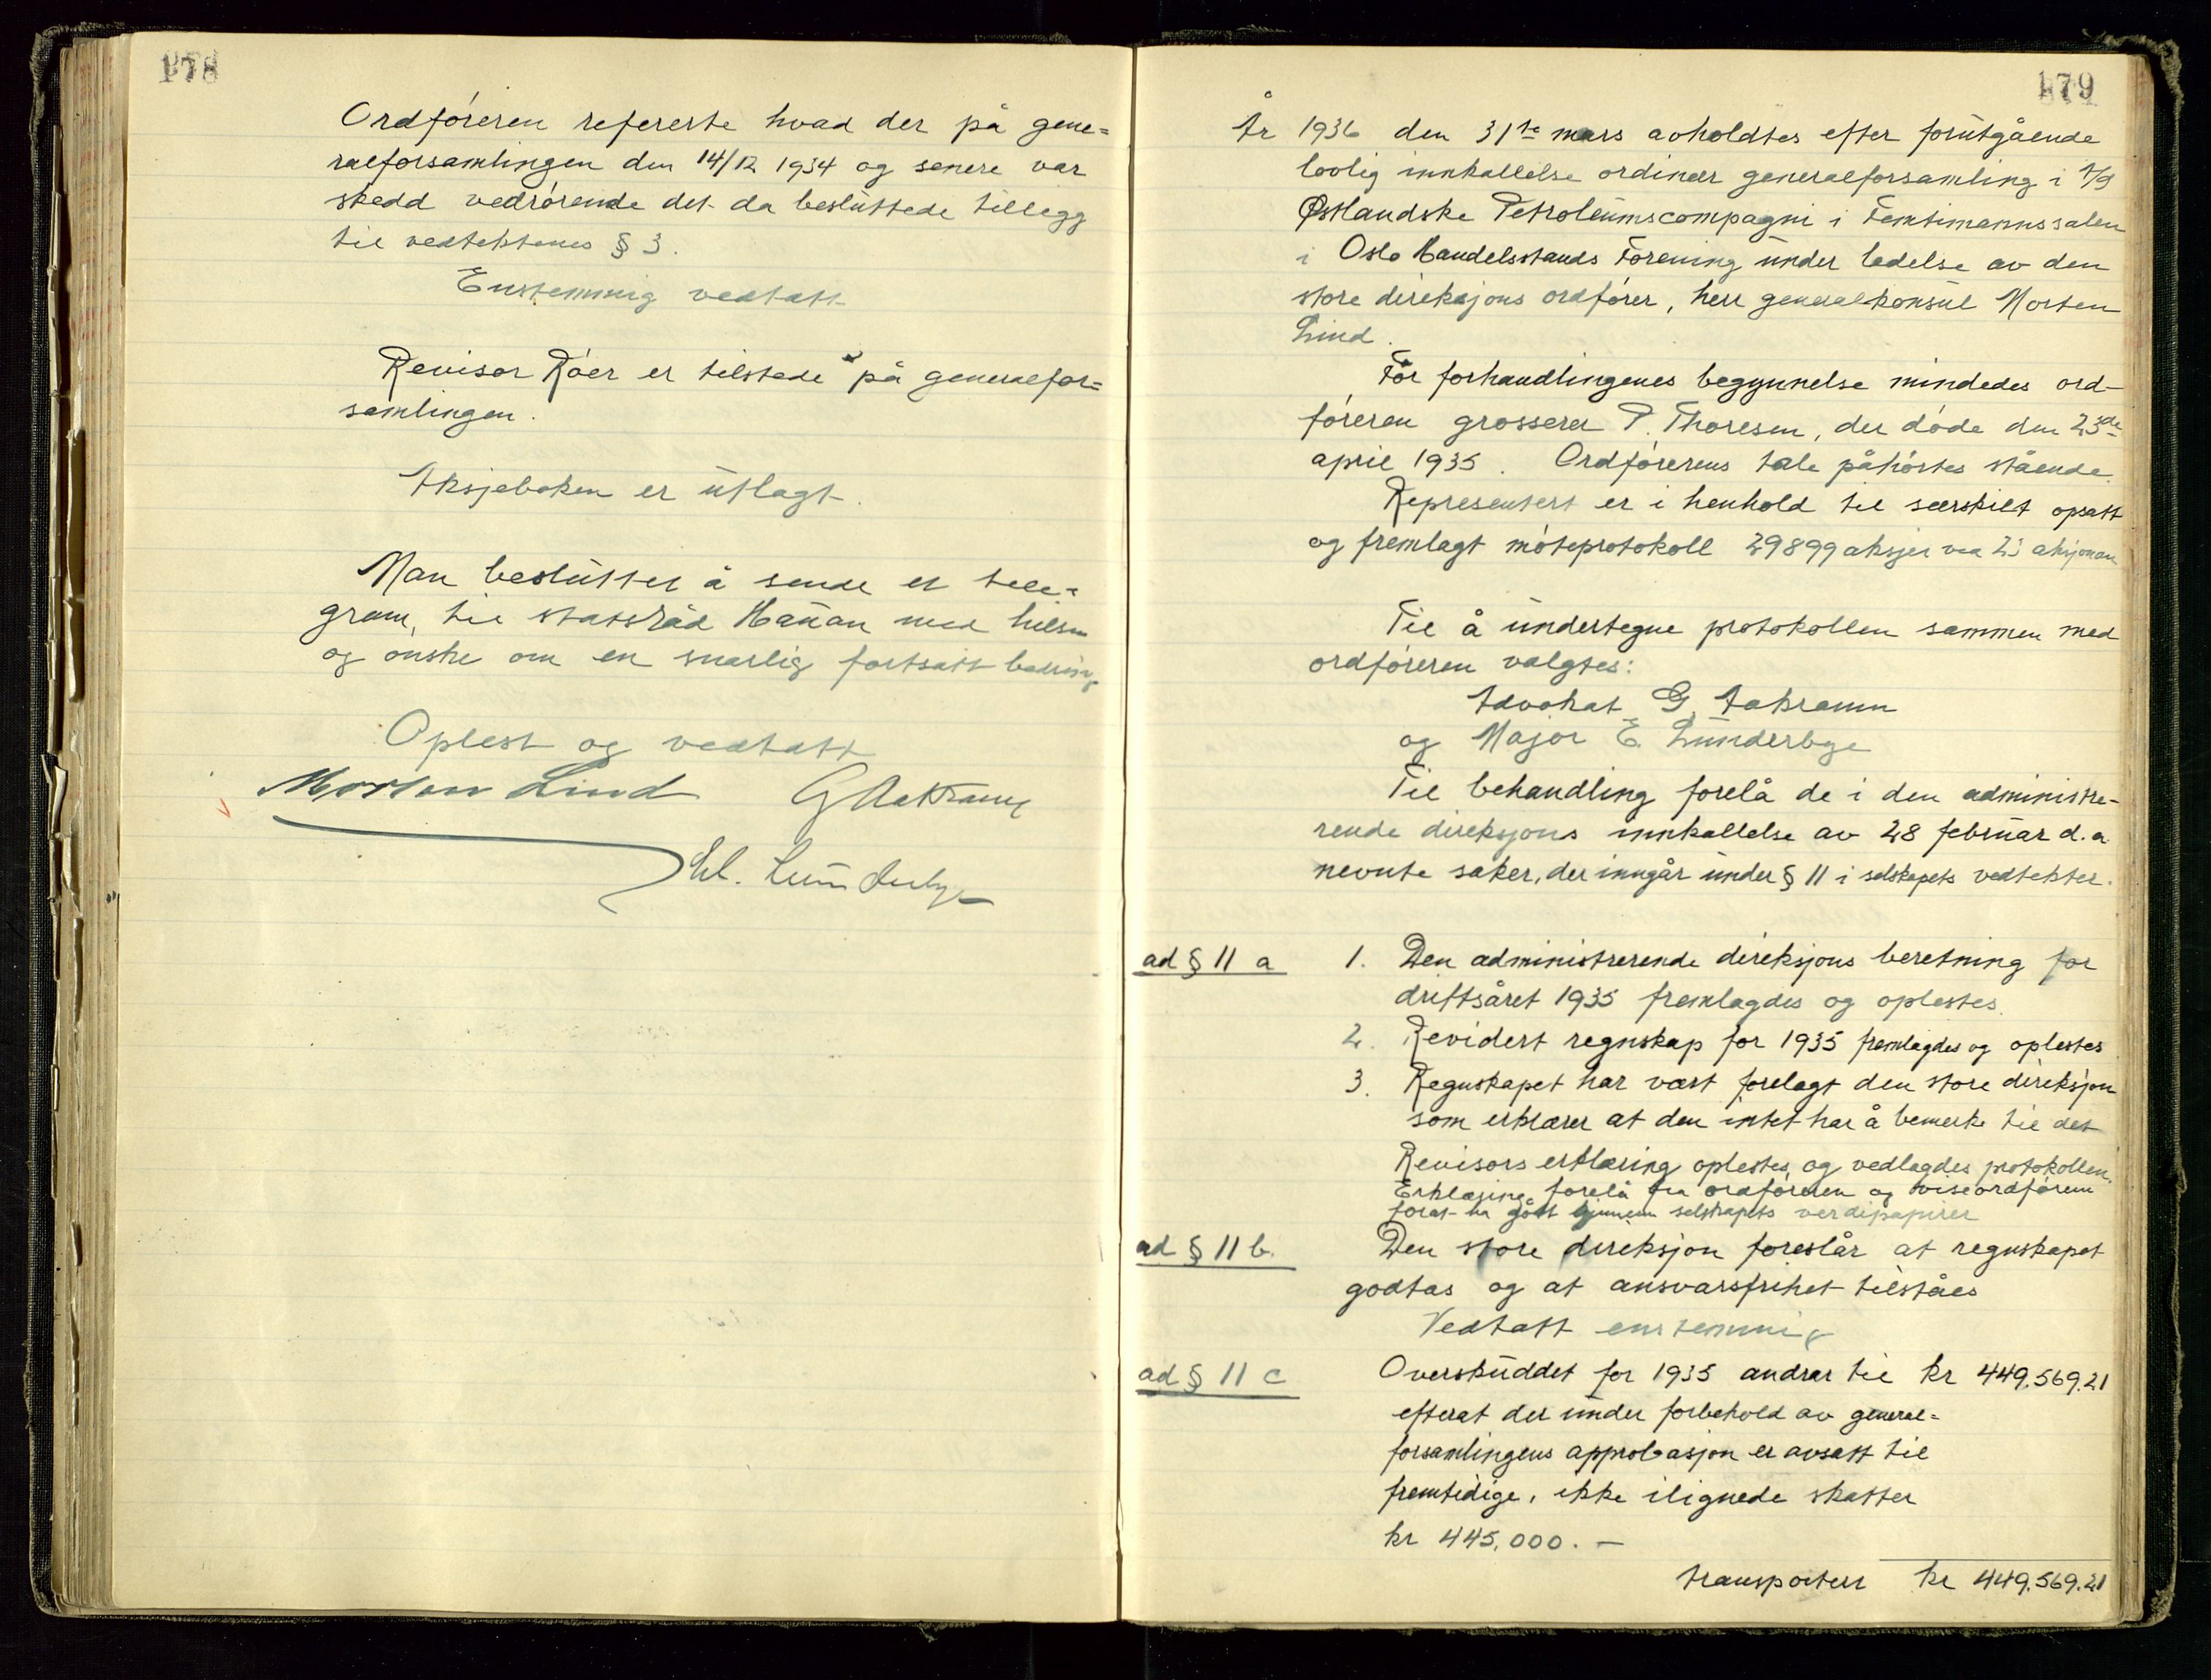 178
Ordføreren refererte hvad der på gene=
ralforsamlingen den 14/12 1934 og senere var
skedd vedrørende det da besluttede tillegg
til vedtektenes § 3.
Enstemmig vedtatt
Revisor Róer er tilstede på generalfor=
samlingen.
Aksjeboken er utlagt.
Man beslutter å sende et tele=
gram, til statsråd Hauan med hilsen
og ønske om en snarlig fortsatt bedring
Oplest og vedtatt
Morten Lind G Aakrann
Chl. Lunderbye
179
År 1936 den 31te mars avholdtes efter forutgående
lovlig innkallelse ordinær generalforsamling i A/S
Østlandske Petroleumscompagni i Femtimannssalen
i Oslo Handelsstands Forening under ledelse av den
store direksjons ordfører, herr generalkonsul Morten
Lind.
Før forhandlingenes begynnelse mindedes ord-
føreren grosserer P. Thoresen, der døde den 23de
april 1935. Ordførerens tale påhørtes stående.
Representert er i henhold til særskilt opsatt
og fremlagt møteprotokoll 29899 aksjer ved 23 aksjonær
Til å undertegne protokollen sammen med
ordføreren valgtes:
Advokat G. Aakrann
og Major E. Lunderbye
Til behandling forelå de i den administre-
rende direksjons innkallelse av 28 februar d.a.
nevnte saker, der inngår under § 11 i selskapets vedtekter.
ad § 11 a 1. Den administrerende direksjons beretning for
driftsåret 1935 fremlagdes og oplestes.
2. Revidert regnskap for 1935 fremlagdes og oplestes
3. Regnskapet har vært forelagt den store direksjon
som erklærer at den intet har å bemerke til det
Revisors erklæring oplestes og vedlagdes protokollen.
Erklæring forelå fra ordføreren og viseordføreren
for at ha gått gjennem selskapets verdipapirer
ad § 11 b. Den store direksjon foreslår at regnskapet
godtas og at ansvarsfrihet tilståes
Vedtatt enstemmig
ad § 11 c Overskuddet for 1935 andrar til kr 449.569.21
efterat der under forbehold av general=
forsamlingens approbasjon er avsatt til
fremtidige, ikke ilignede skatter
kr 445.000.—
transportert kr 449.569.21